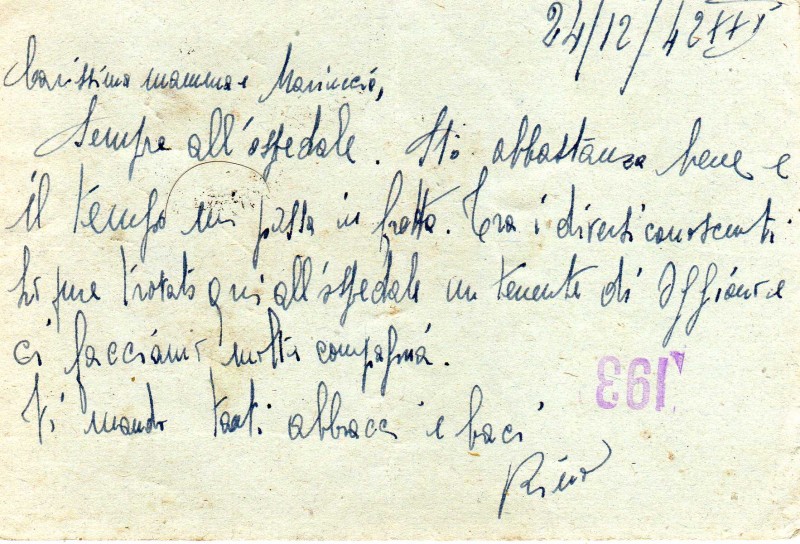 24/12/42 XXI
Carissima mamma e Mariuccia,
Sempre all'ospedale. Sto abbastanza bene e
il tempo mi passa in fretta. Tra i diversi conoscenti
ho pure trovato qui all'ospedale un tenente di Oggiono e
ci facciamo molta compagnia.
Vi mando tanti abbracci e baci
Rino
193